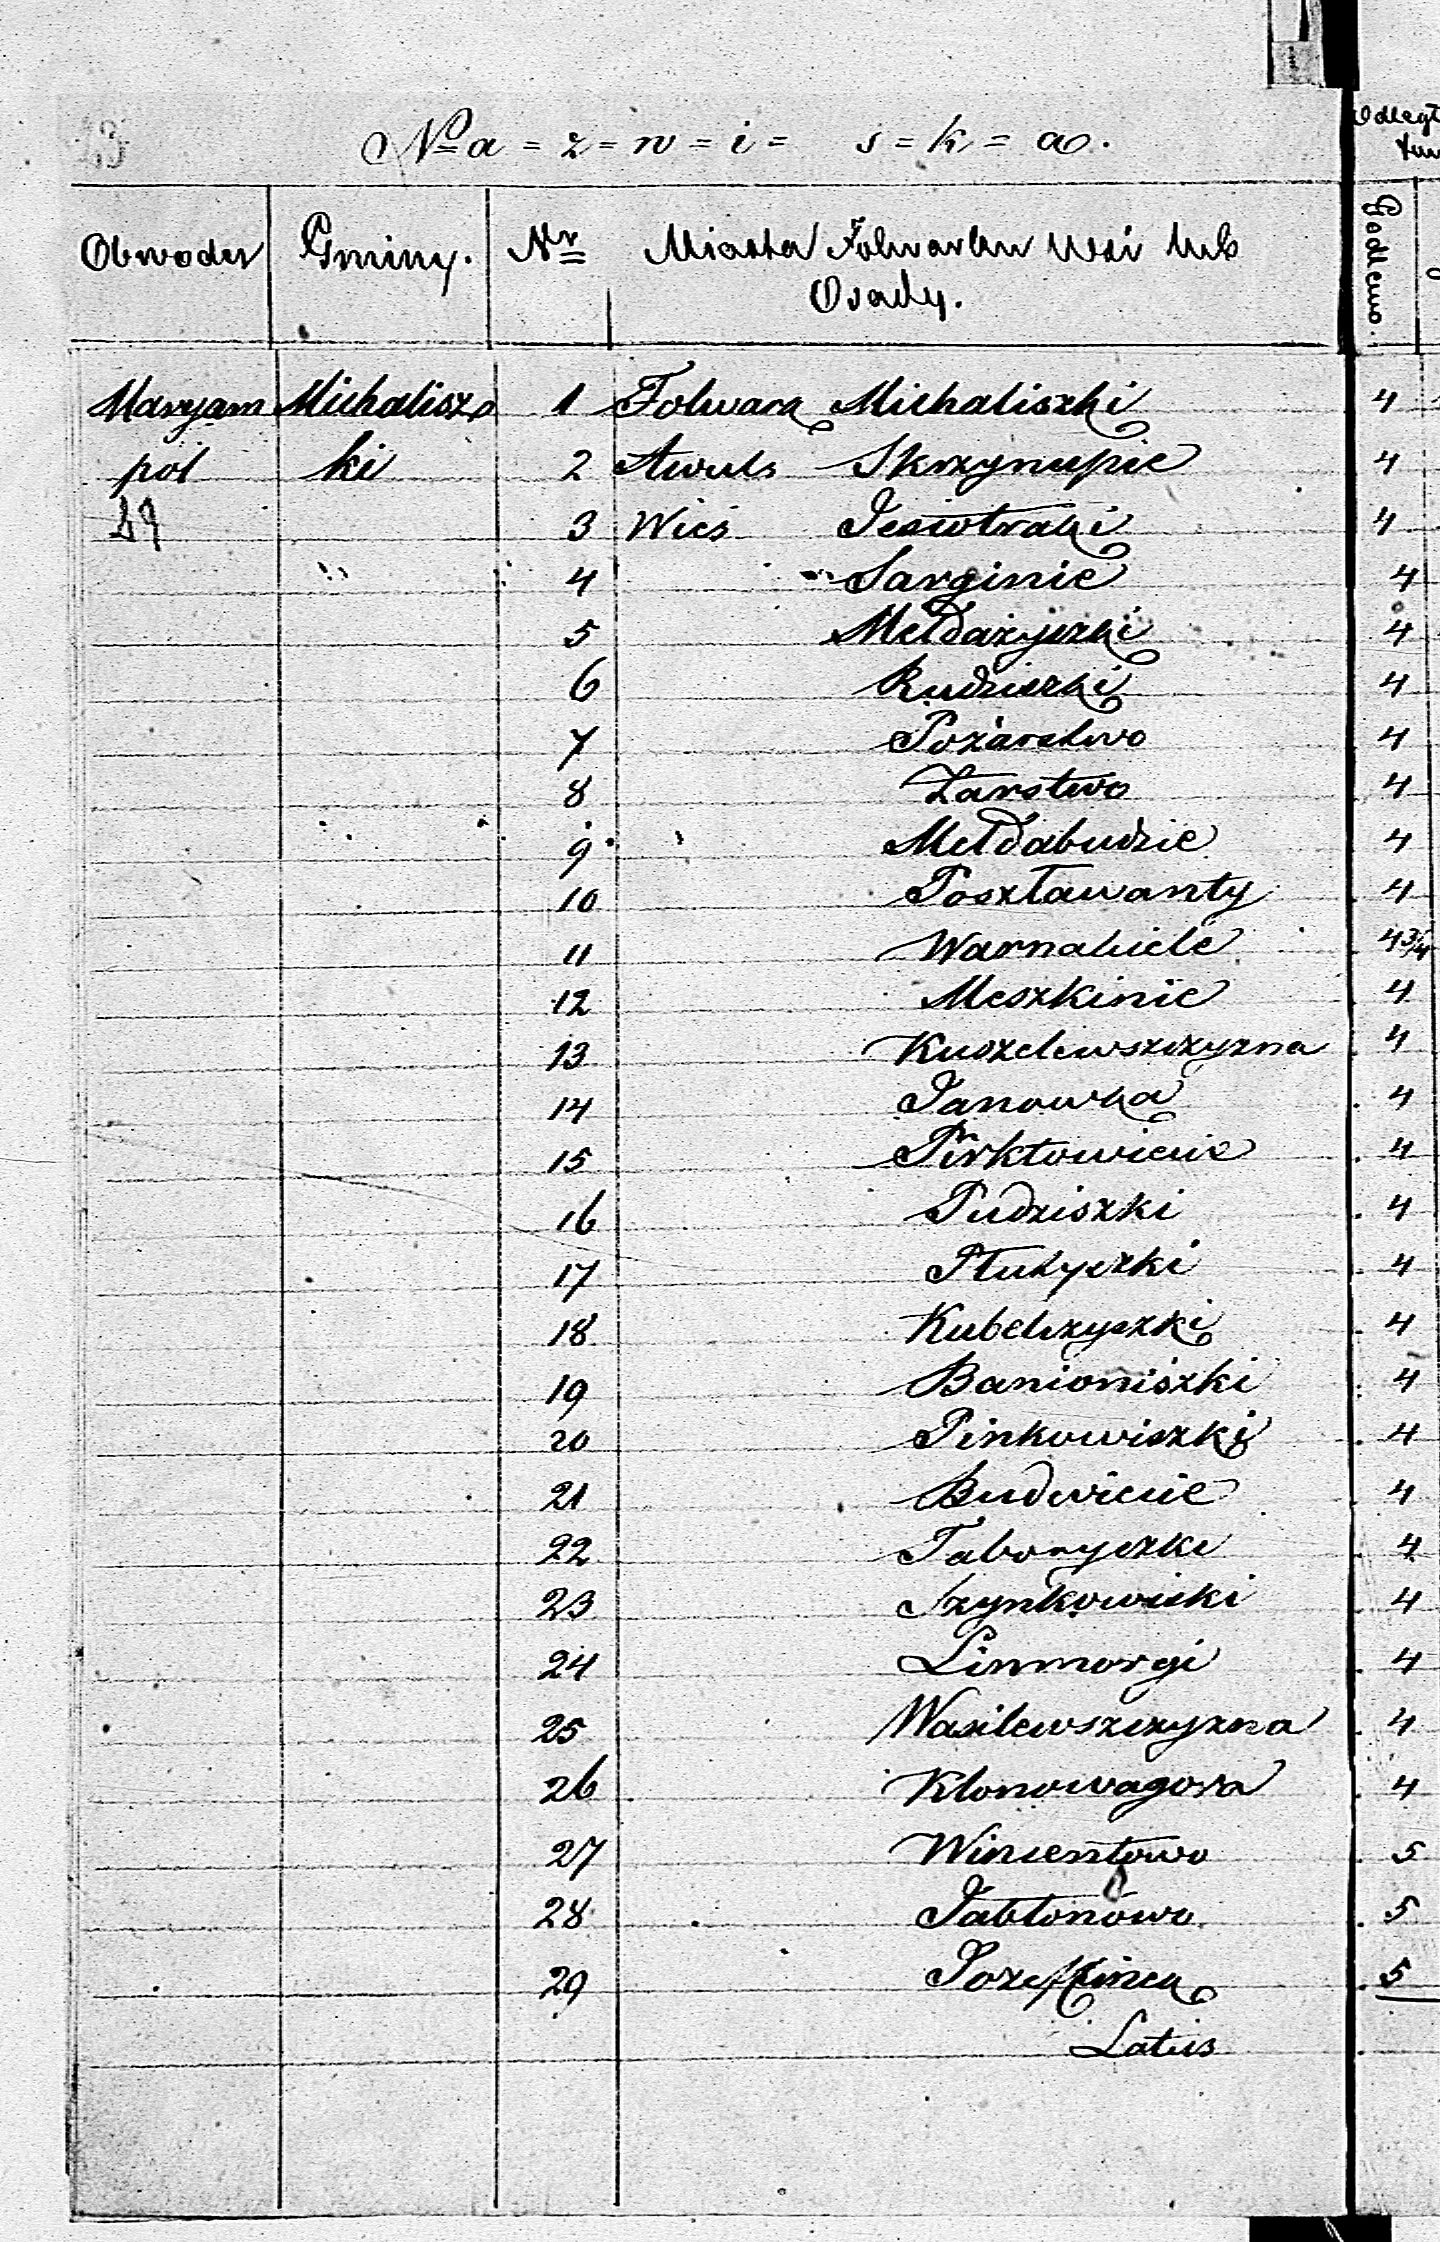 Na=z=w=i= s=k=a.
Odległ
Obwodu Gminy. Nr Miasta Folwarku Wsi lub
Osady. Godlewo.
Maryam Michalisz 1 Folwark Michaliszki 4
pol ki 2 Awuls Skrzynupie 4
3 Wieś Jesiotraki 4
4 Sarginie 4
5 Mełdażyszki 4
6 Rudziszki 4
7 Pożarstwo 4
8 Żarstwo 4
9 Mełdabudzie 4
10 Poszławanty 4
11 Warnabiele 4 3/4
12 Meszkinie 4
13 Kuszelewszczyzna 4
14 Janowka 4
15 Pirktowiecie 4
16 Pudziszki 4
17 Płutyszki 4
18 Kubelczyszki 4
19 Banioniszki 4
20 Pinkowiszki 4
21 Budwiecie 4
22 Taboryszki 4
23 Szynkowiski 4
24 Linmorgi 4
25 Wasilewszczyzna 4
26 Klonowagora 4
27 Wincentowo 5
28 Jabłonowo 5
29 Jozeffinca 5
Latus